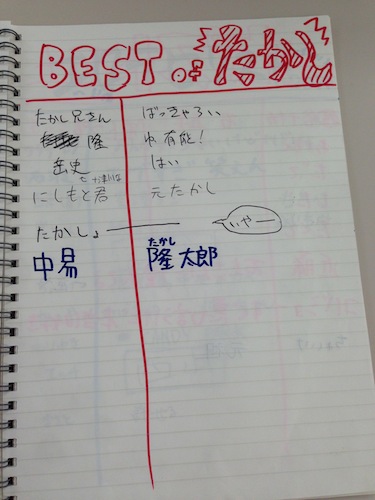 BEST OF たかし
たかし兄さん ばっきゃろい
隆 や、有能！
岳史 はい
にしもと君 元たかし
たかしょ いやー
たかし
中易 隆太郎